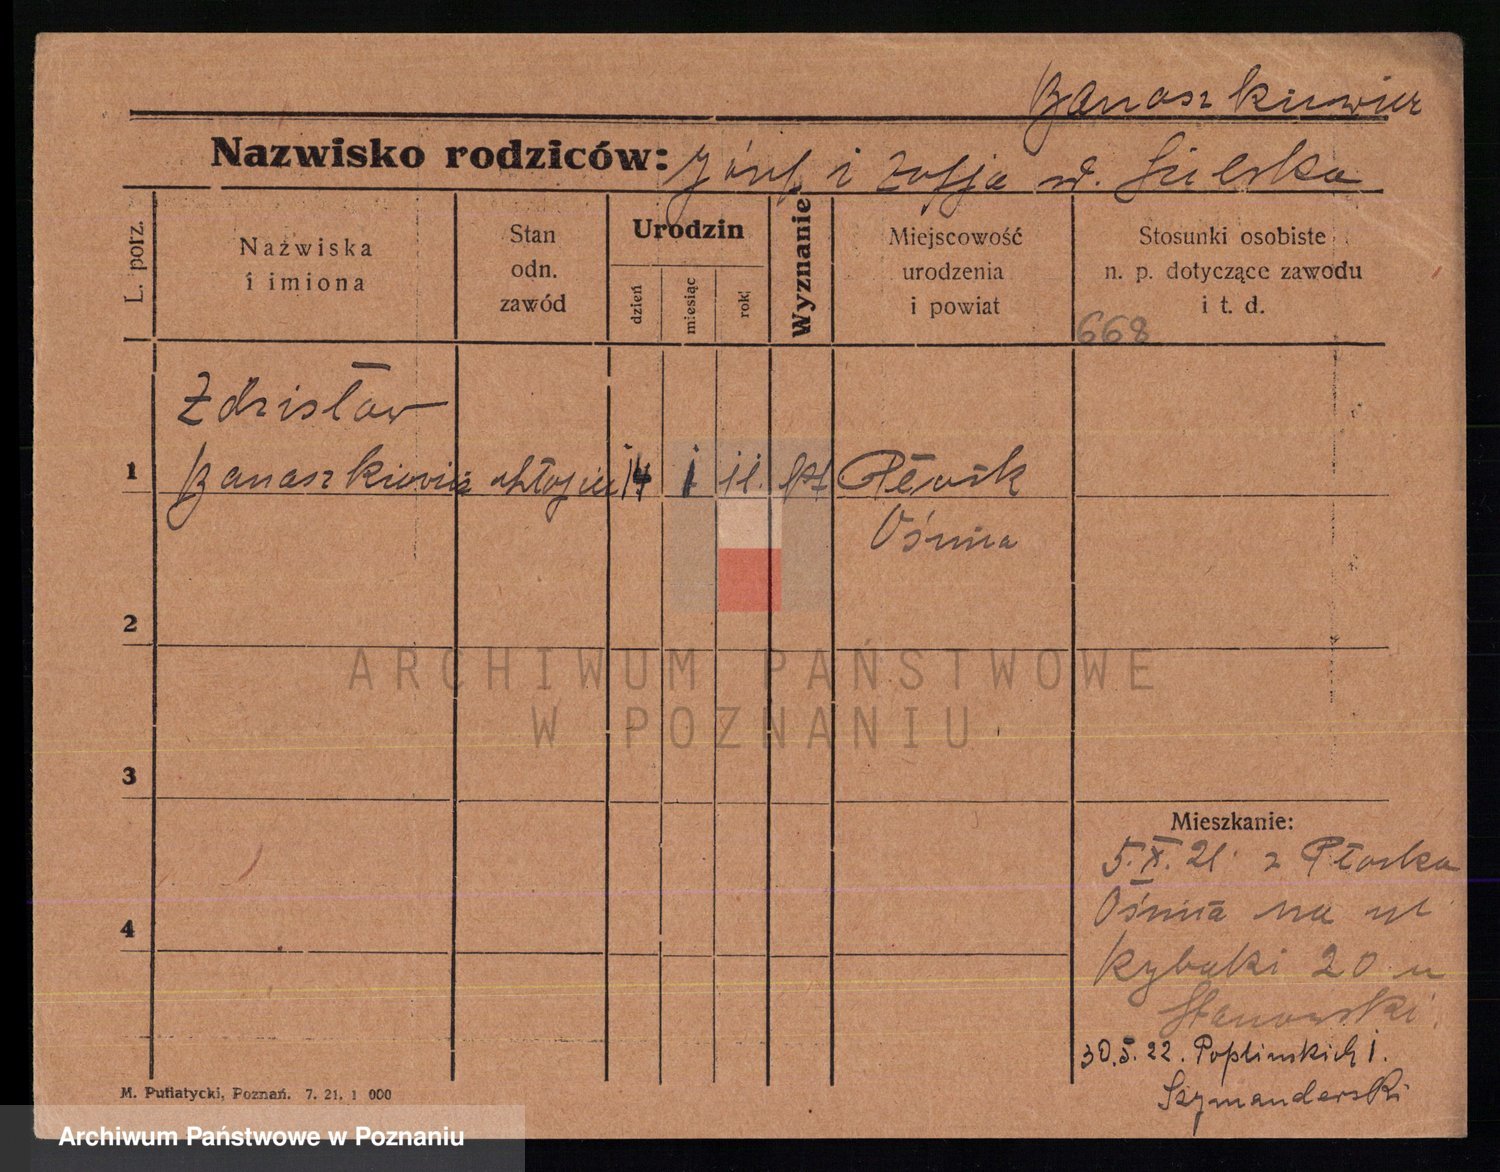 Banaszkiewicz
Nazwisko rodziców: Józef i Zofja
L. porz.
Nazwiska
i imiona
Stan
odn.
zawód
Urodzin
dzień
miesiąc
rok
Wyznanie
Miejscowość
urodzenia
i powiat
Stosunki osobiste
n. p. dotyczące zawodu
i t. d.
668
Zdzisław
1 Banaszkiewicz chłopiec 14 1 11. Płońsk
2
3
4
Mieszkanie:
5.X.21. z Płońska
na ul
Rybaki 20 u
Stanowski.
30.5.22. Poplinskich 1.
Szymanderski
M. Putiatycki, Poznań. 7. 21. 1 000
ARCHIWUM PAŃSTWOWE
W POZNANIU
Archiwum Państwowe w Poznaniu